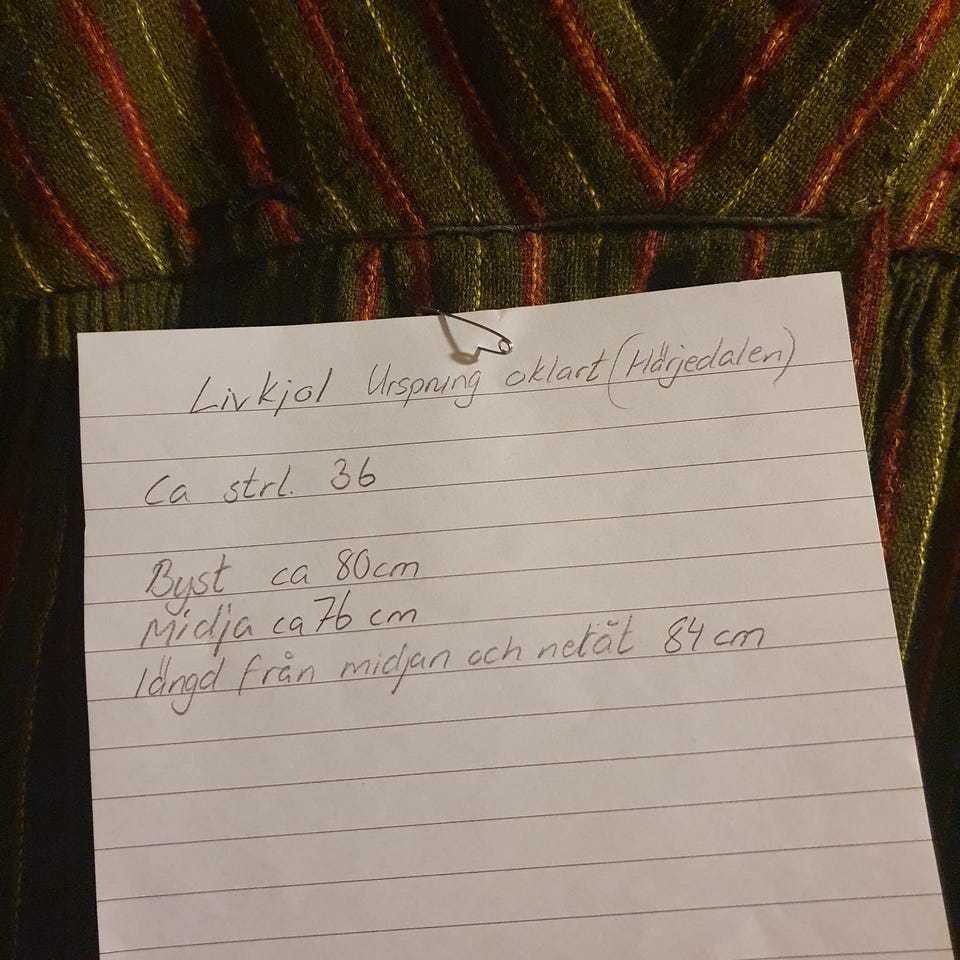 Livkjol Urspning oklart (Härjedalen)
Ca strl. 36
Byst ca 80cm
Midja ca 76 cm
längd från midjan och netåt 84 cm